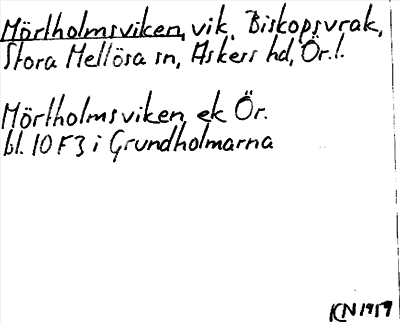 Mörtholmsviken, vik, Biskopsvrak,
Stora Mellösa sn, Askers hd, Ör. l.
Mörtholmsviken, ek Ör.
bl. 10 F3 i Grundholmarna
KN 1959